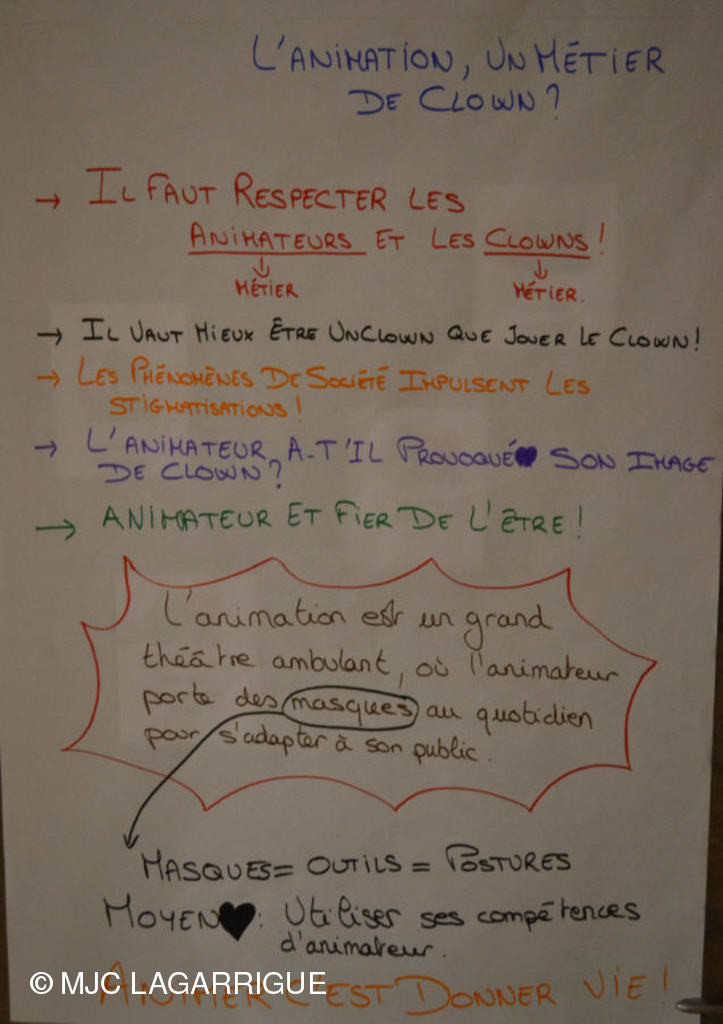 L'ANIMATION, UN MÉTIER
DE CLOWN ?
→ IL FAUT RESPECTER LES
ANIMATEURS ET LES CLOWNS !
↓ ↓
MÉTIER MÉTIER.
→ IL VAUT MIEUX ÊTRE UN CLOWN QUE JOUER LE CLOWN !
→ LES PHÉNOMÈNES DE SOCIÉTÉ IMPULSENT LES
STIGMATISATIONS !
→ L'ANIMATEUR, A-T'IL PROVOQUÉ SON IMAGE
DE CLOWN ?
→ ANIMATEUR ET FIER DE L'ÊTRE !
L'animation est un grand
théâtre ambulant, où l'animateur
porte des masques au quotidien
pour s'adapter à son public.
MASQUES = OUTILS = POSTURES
MOYEN ♥ : Utiliser ses compétences
d'animateur.
ANIMER C'EST DONNER VIE !
© MJC LAGARRIGUE